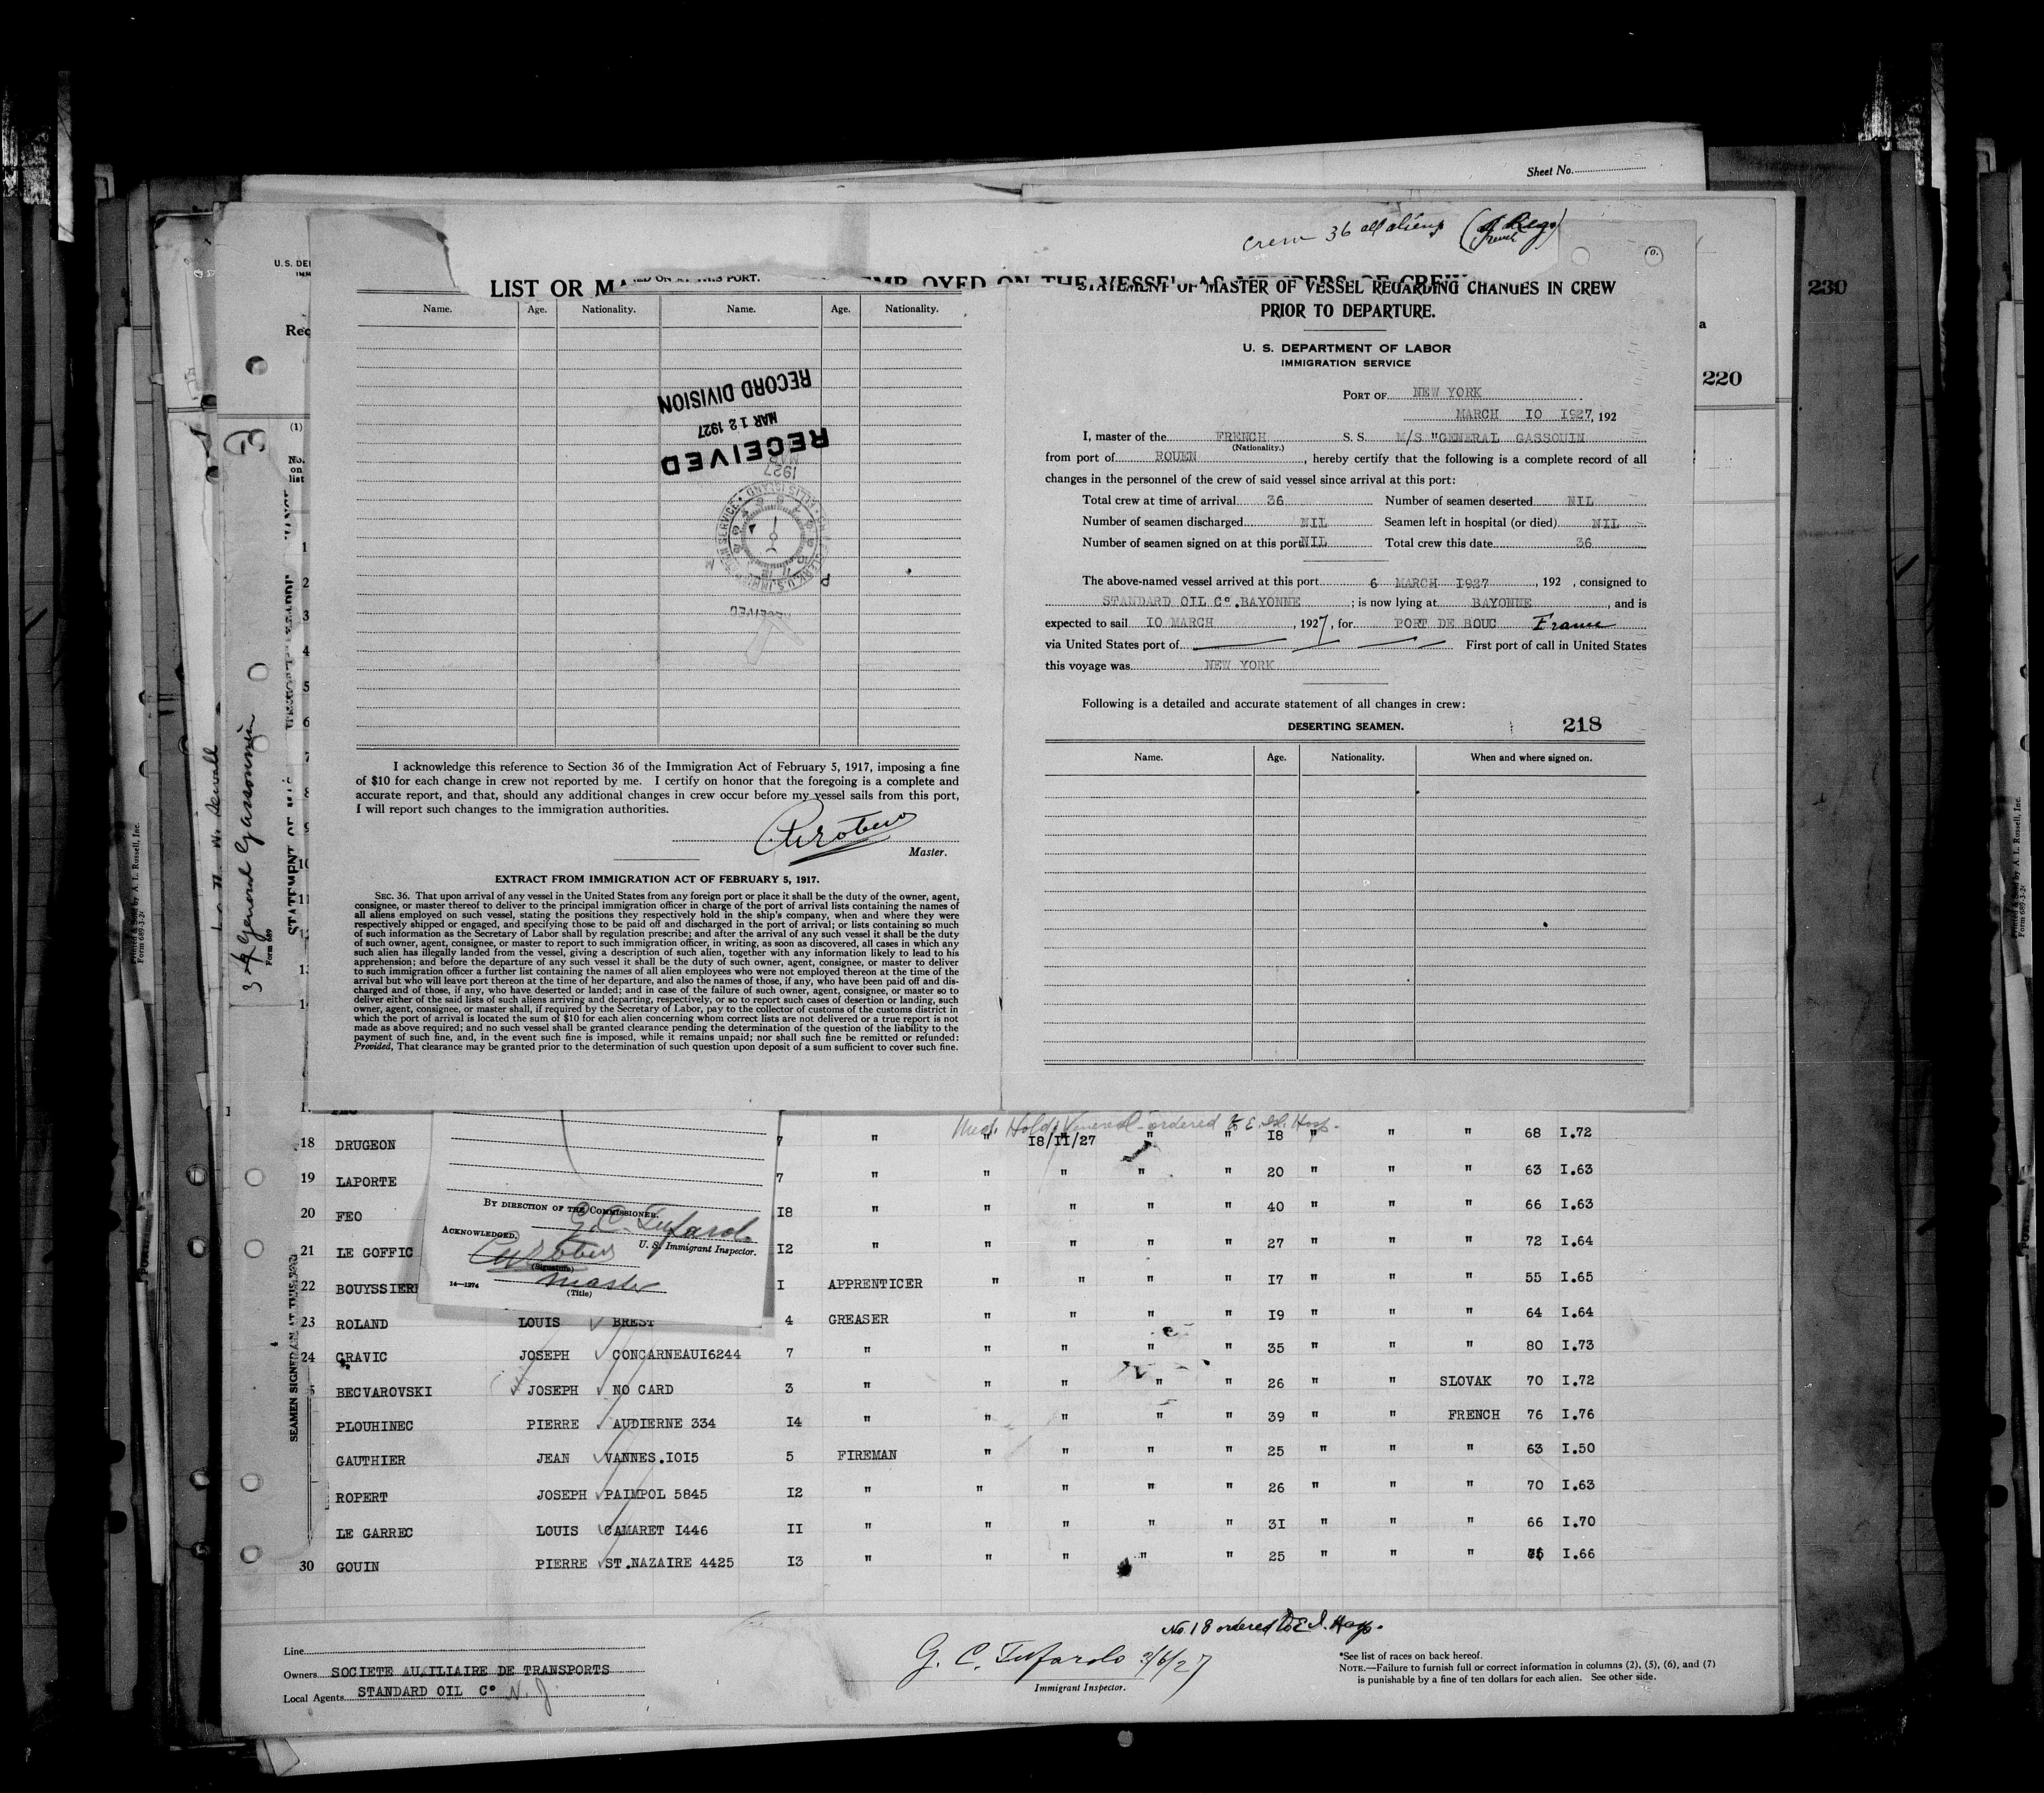 Sheet No.
Crew 36 all aliens
LIST OR
EMPLOYED ON THE VESSEL AS MEMBERS OF CREW
230
220
ED ON AT THIS PORT.
Name. Age. Nationality. Name. Age. Nationality.
RECEIVED
MAR 12 1927
RECORD DIVISION
1927
ELLIS ISLAND
I acknowledge this reference to Section 36 of the Immigration Act of February 5, 1917, imposing a fine
of $10 for each change in crew not reported by me. I certify on honor that the foregoing is a complete and
accurate report, and that, should any additional changes in crew occur before my vessel sails from this port,
I will report such changes to the immigration authorities.
Master.
EXTRACT FROM IMMIGRATION ACT OF FEBRUARY 5, 1917.
SEC. 36. That upon arrival of any vessel in the United States from any foreign port or place it shall be the duty of the owner, agent,
consignee, or master thereof to deliver to the principal immigration officer in charge of the port of arrival lists containing the names of
all aliens employed on such vessel, stating the positions they respectively hold in the ship's company, when and where they were
respectively shipped or engaged, and specifying those to be paid off and discharged in the port of arrival; or lists containing so much
of such information as the Secretary of Labor shall by regulation prescribe; and after the arrival of any such vessel it shall be the duty
of such owner, agent, consignee, or master to report to such immigration officer, in writing, as soon as discovered, all cases in which any
such alien has illegally landed from the vessel, giving a description of such alien, together with any information likely to lead to his
apprehension; and before the departure of any such vessel it shall be the duty of such owner, agent, consignee, or master to deliver
to such immigration officer a further list containing the names of all alien employees who were not employed thereon at the time of the
arrival but who will leave port thereon at the time of her departure, and also the names of those, if any, who have been paid off and dis-
charged and of those, if any, who have deserted or landed; and in case of the failure of such owner, agent, consignee, or master so to
deliver either of the said lists of such aliens arriving and departing, respectively, or so to report such cases of desertion or landing, such
owner, agent, consignee, or master shall, if required by the Secretary of Labor, pay to the collector of customs of the customs district in
which the port of arrival is located the sum of $10 for each alien concerning whom correct lists are not delivered or a true report is not
made as above required; and no such vessel shall be granted clearance pending the determination of the question of the liability to the
payment of such fine, and, in the event such fine is imposed, while it remains unpaid; nor shall such fine be remitted or refunded:
Provided, That clearance may be granted prior to the determination of such question upon deposit of a sum sufficient to cover such fine.
STATEMENT OF MASTER OF VESSEL REGARDING CHANGES IN CREW
PRIOR TO DEPARTURE.
U. S. DEPARTMENT OF LABOR
IMMIGRATION SERVICE
PORT OF NEW YORK
MARCH 10 1927, 192
I, master of the FRENCH S. S. M/S "GENERAL GASSOUIN
(Nationality.)
from port of ROUEN, hereby certify that the following is a complete record of all
changes in the personnel of the crew of said vessel since arrival at this port:
Total crew at time of arrival 36 Number of seamen deserted NIL
Number of seamen discharged NIL Seamen left in hospital (or died) NIL
Number of seamen signed on at this port NIL Total crew this date 36
The above-named vessel arrived at this port 6 MARCH 1927, 192 , consigned to
STANDARD OIL Co.BAYONNE; is now lying at BAYONNE, and is
expected to sail 10 MARCH, 1927, for PORT DE BOUC France
via United States port of First port of call in United States
this voyage was NEW YORK
Following is a detailed and accurate statement of all changes in crew:
DESERTING SEAMEN. 218
Name. Age. Nationality. When and where signed on.
Med. Hold Venereal ordered to E. Isl. Hosp.
18 DRUGEON 7 " " 18/11/27 " " 18 " " " 68 1.72
19 LAPORTE 7 " " " " " 20 " " " 63 1.63
20 FEO 18 " " " " " 40 " " " 66 1.63
21 LE GOFFIC 12 " " " " " 27 " " " 72 1.64
22 BOUYSSIER 1 APPRENTICER " " " " 17 " " " 55 1.65
23 ROLAND LOUIS BREST 4 GREASER " " " " 19 " " " 64 1.64
24 CRAVIC JOSEPH CONCARNEAU16244 7 " " " " " 35 " " " 80 1.73
BECVAROVSKI JOSEPH NO CARD 3 " " " " " 26 " " SLOVAK 70 1.72
PLOUHINEC PIERRE AUDIERNE 334 14 " " " " " 39 " " FRENCH 76 1.76
GAUTHIER JEAN VANNES.1015 5 FIREMAN " " " " 25 " " " 63 1.50
ROPERT JOSEPH PAIMPOL 5845 12 " " " " " 26 " " " 70 1.63
LE GARREC LOUIS CAMARET 1446 11 " " " " " 31 " " " 66 1.70
30 GOUIN PIERRE ST.NAZAIRE 4425 13 " " " " " 25 " " " 1.66
BY DIRECTION OF THE COMMISSIONER.
G. C. Tufarolo
U. S. Immigrant Inspector.
ACKNOWLEDGED.
(Signature)
Master
(Title)
14—1274
No. 18 ordered to E. I. Hosp.
G. C. Tufarolo 3/6/27
Immigrant Inspector.
Line
Owners SOCIETE AUXILIAIRE DE TRANSPORTS
Local Agents STANDARD OIL Co N. J.
*See list of races on back hereof.
NOTE.—Failure to furnish full or correct information in columns (2), (5), (6), and (7)
is punishable by a fine of ten dollars for each alien. See other side.
General Gassouin
Form 689
SEAMEN SIGNED ON AT THIS PORT
Printed & Sold by A. L. Russell, Inc.